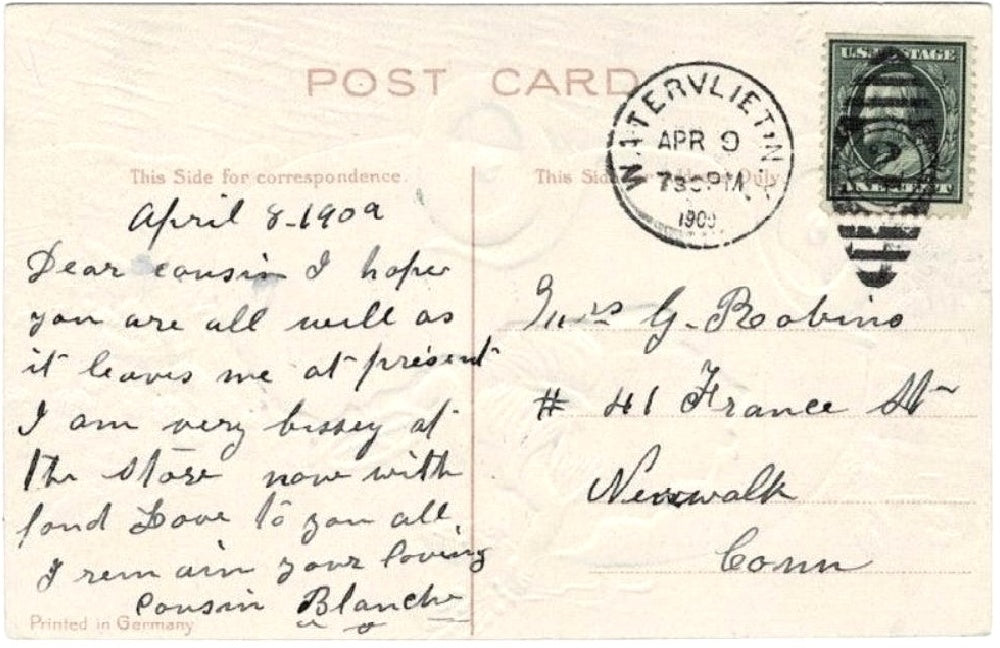 POST CARD
U.S. POSTAGE
WATERVLIET N.Y.
APR 9
7 30 PM
1909
2
This Side for correspondence.
April 8-1909
Dear cousin I hope
you are all well as
it leaves me at present
I am very bissey at
the store now with
fond Love to you all
I remain your loving
cousin Blanche
Printed in Germany
This Side Only
Mrs G. Robino
# 41 France St
Newwalk
Conn